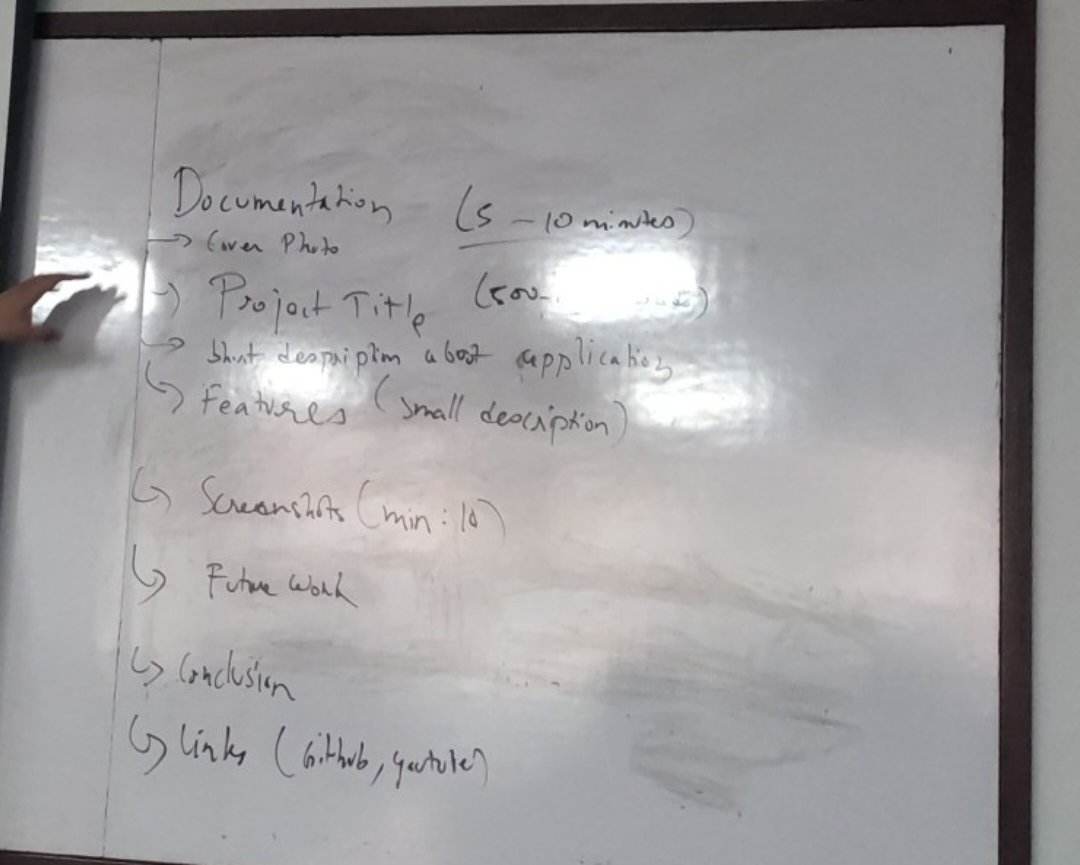 Documentation (5 - 10 minutes)
→ Cover Photo
→ Project Title (500-
→ Short description about application
↳ Features (small description)
↳ Screenshots (min : 10)
↳ Future Work
↳ Conclusion
↳ Links (Github, youtube)